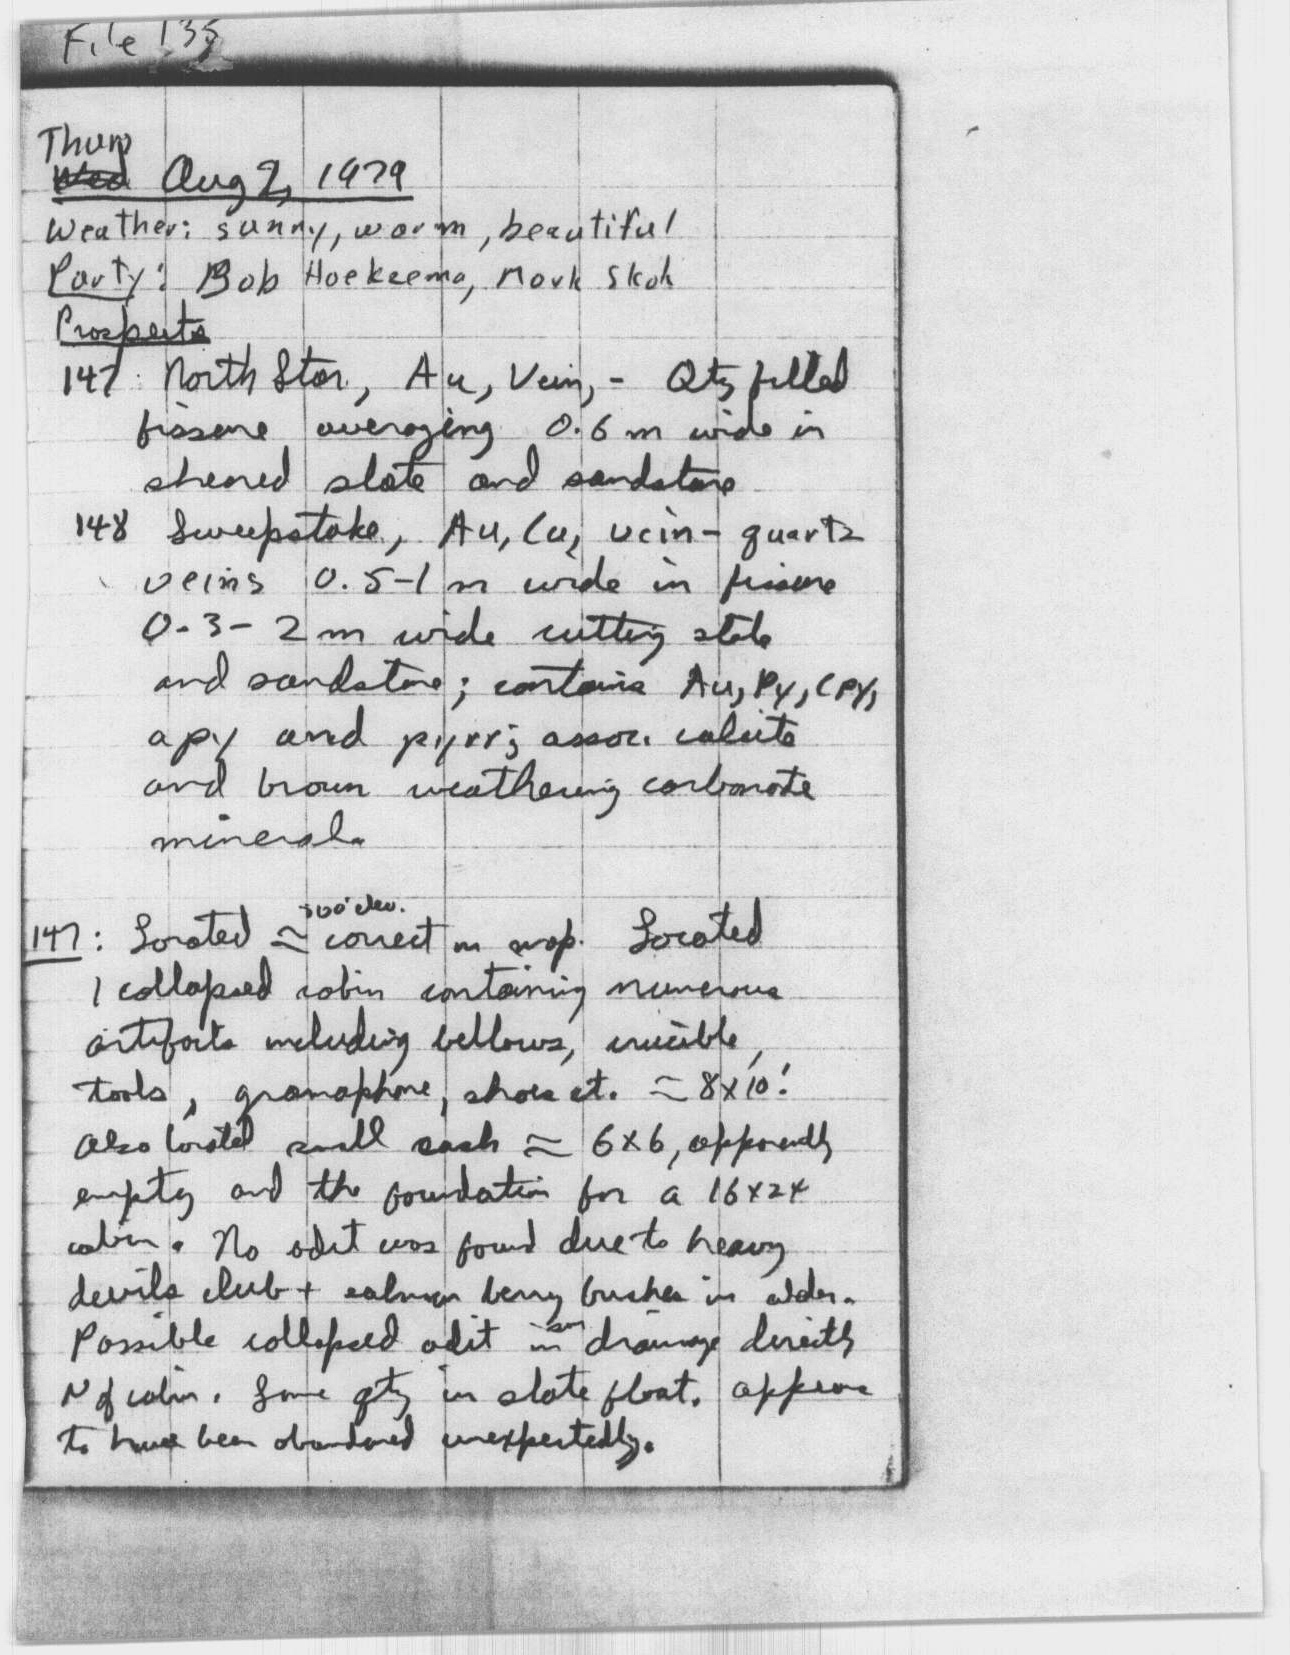 File 135
Thurs
Wed Aug 2, 1979
Weather: sunny, warm, beautiful
Party: Bob Hoekzema, Mark
Prospects
147 North Star, Au, Vein, - Qtz filled
fissure averaging 0.6 m wide in
sheared slate and sandstone
148 Sweepstake, Au, Cu, vein - quartz
veins 0.5-1 m wide in fissure
0.3-2 m wide cutting slate
and sandstone; contains Au, Py, Cpy,
apy and pyrr; assoc. calcite
and brown weathering carbonate
mineral.
300' elev.
147: Located ≈ correct on map. Located
1 collapsed cabin containing numerous
artifacts including bellows, crucible,
tools, gramaphone, shoes et. ≈ 8x10!
Also located small cash ≈ 6x6, apparently
empty and the foundation for a 16x24
cabin. No adit was found due to heavy
devils club + salmon berry bushes in alder.
Possible collapsed adit in drainage directly
N of cabin. Some qtz in slate float. appears
to have been abandoned unexpectedly.